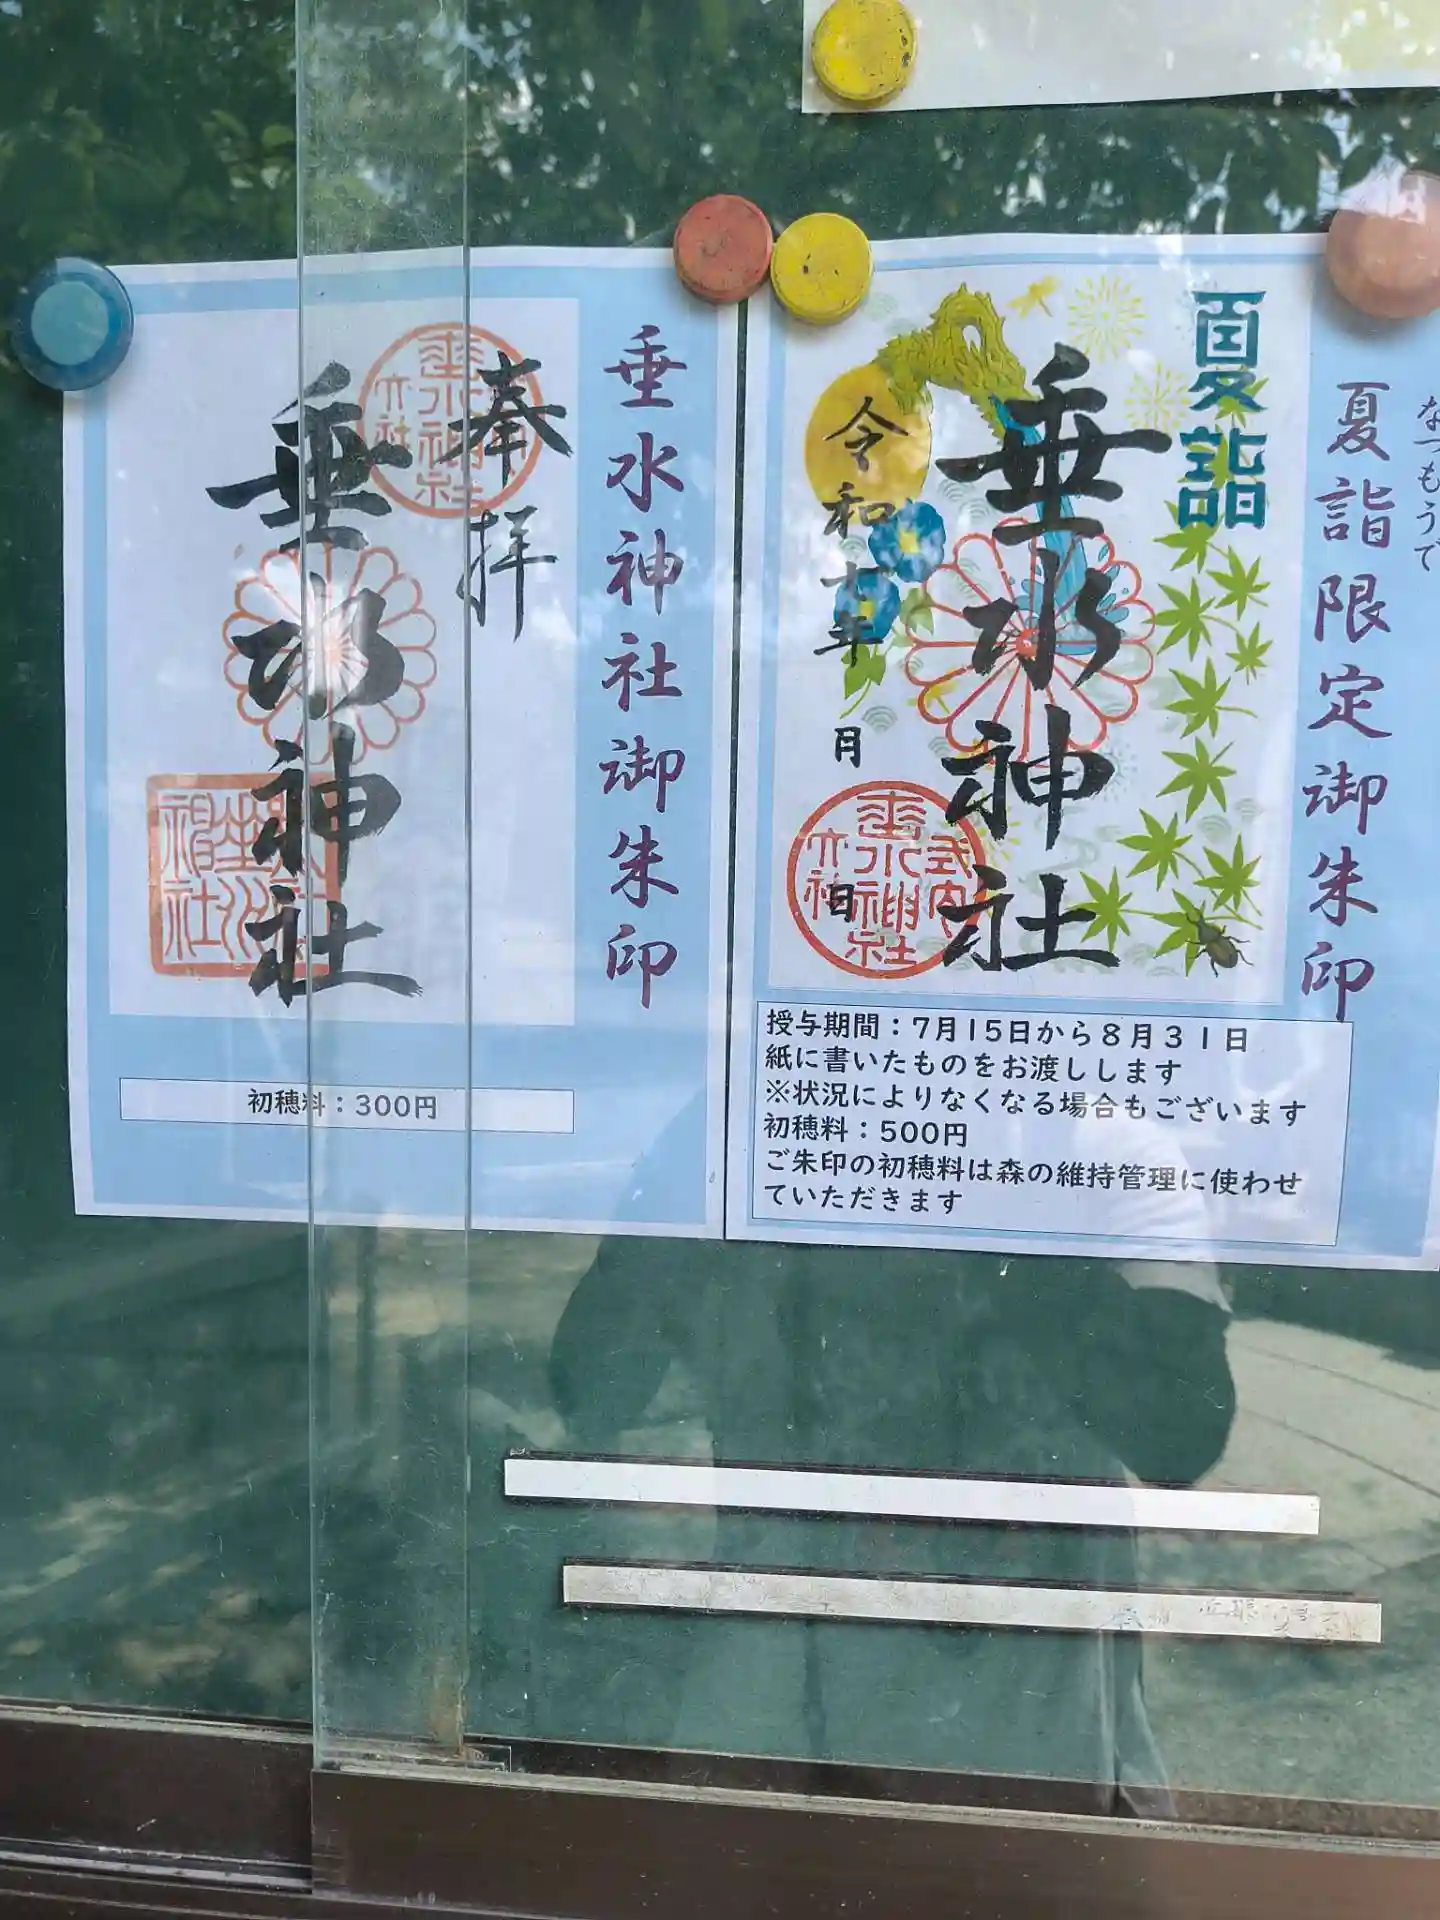 垂水神社御朱印
奉拝
垂水神社
初穂料：300円
なつもうで
夏詣限定御朱印
夏詣
垂水神社
令和七年
月
日
授与期間：7月15日から8月31日
紙に書いたものをお渡しします
※状況によりなくなる場合もございます
初穂料：500円
ご朱印の初穂料は森の維持管理に使わせ
ていただきます